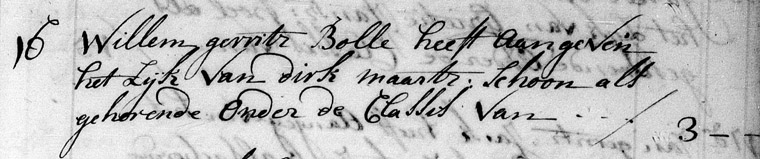 16 Willem gerritz Bolle heeft Aangeven
het Lijk van dirk maartz. Schoon als
gehorende Onder de Classis van . . . / 3 - -